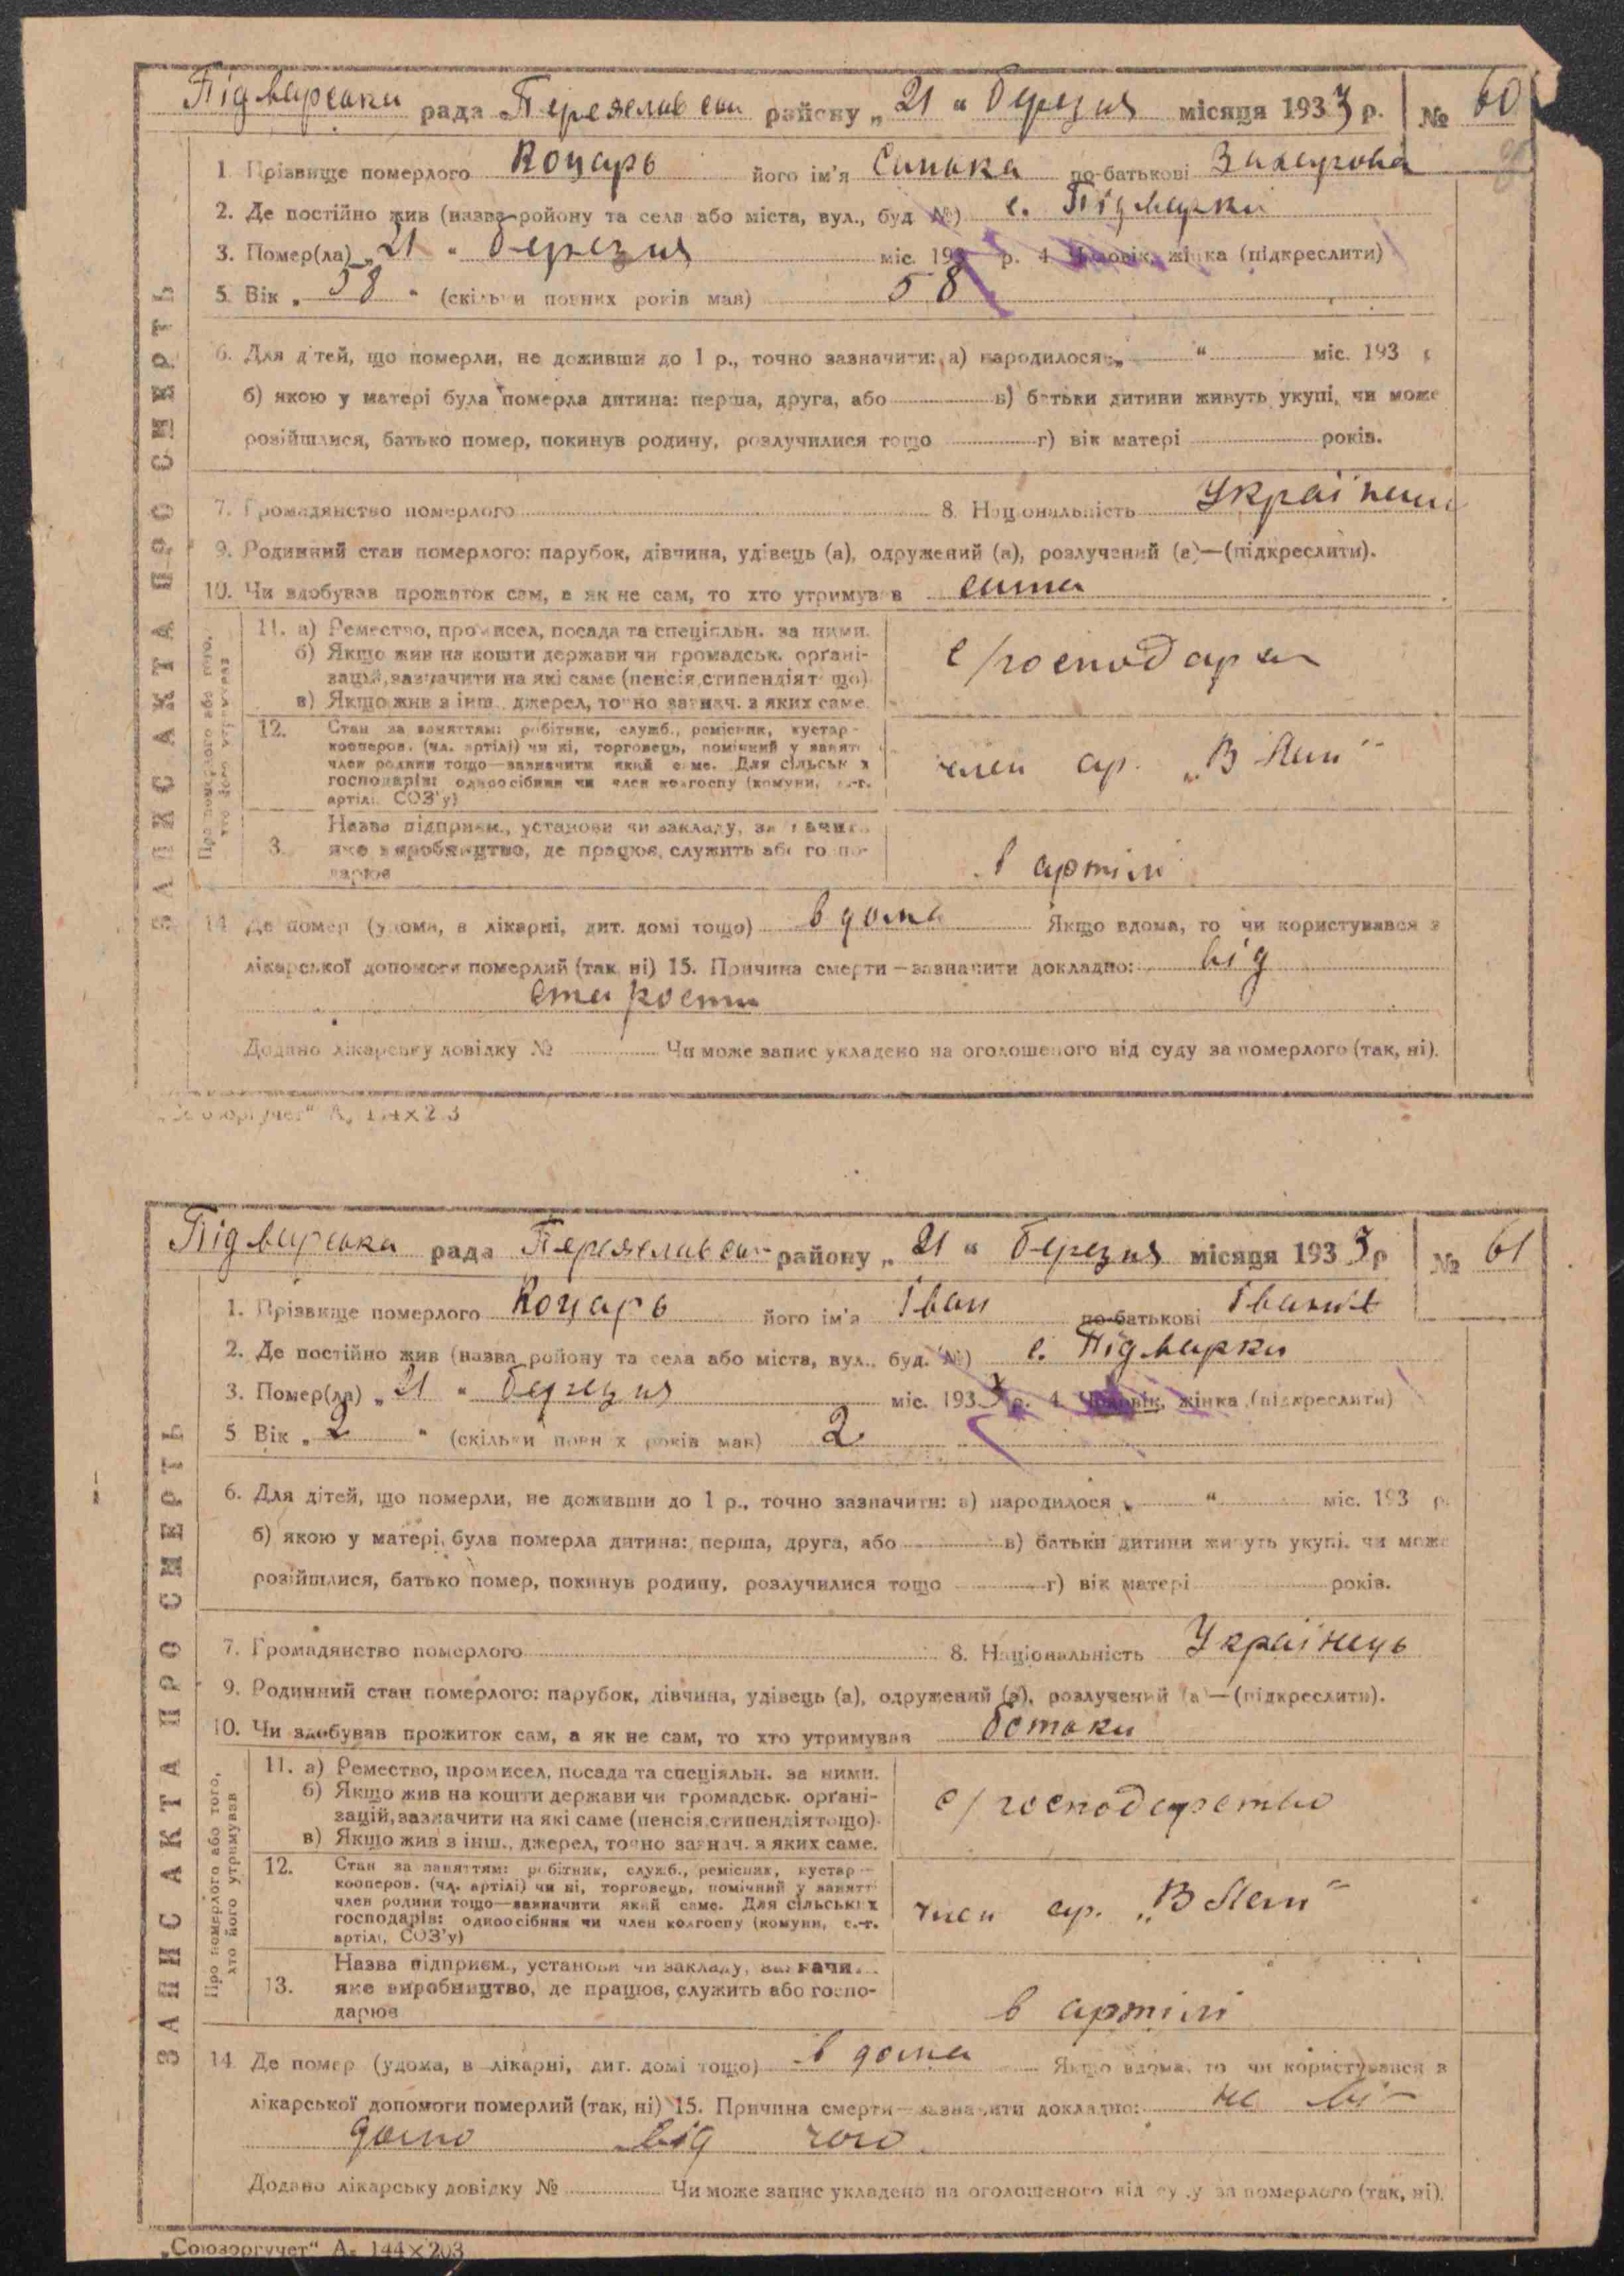 Підварська рада Переяславськ району „21“ березня місяця 1933 р. № 60
1. Прізвище померлого Коцарь його ім'я по-батькові Захарова
2. Де постійно жив (назва ройону та села або міста, вул., буд. №) с. Підварки
3. Помер(ла) „21“ березня міс. 193 р. 4. Чоловік, жінка (підкреслити)
5. Вік „58“ (скільки повних років мав) 58
6. Для дітей, що померли, не доживши до 1 р., точно зазначити: а) народилося „ “ міс. 193 р
б) якою у матері була померла дитина: перша, друга, або в) батьки дитини живуть укупі, чи може
розійшлися, батько помер, покинув родину, розлучилися тощо г) вік матері років.
7. Громадянство померлого 8. Національність Українка
9. Родинний стан померлого: парубок, дівчина, удівець (а), одружений (а), розлучений (а)—(підкреслити).
10. Чи здобував прожиток сам, а як не сам, то хто утримував сама
ЗАПИС АКТА ПРО СМЕРТЬ
Про померлого або того, хто його утримував
11. а) Ремество, промисел, посада та спеціяльн. за ними.
б) Якщо жив на кошти держави чи громадськ. орґані-
зацій, зазначити на які саме (пенсія, стипендія тощо).
в) Якщо жив з інш., джерел, точно зазнач. з яких саме.
с/господарка
12. Стан за заняттям: робітник, служб., ремісник, кустар-
кооперов. (чл. артілі) чи ні, торговець, помічний у занятті
член родини тощо—зазначити який саме. Для сільських
господарів: одноосібник чи член колгоспу (комуни, с.-г.
артілі, СОЗ'у)
член ар.
13. Назва підприєм., установи чи закладу, зазначити
яке виробництво, де працює, служить або госпо-
дарює
в артілі
14. Де помер (удома, в лікарні, дит. домі тощо) вдома Якщо вдома, то чи користувався з
лікарської допомоги померлий (так, ні) 15. Причина смерти—зазначити докладно: від
старости
Додано лікарську довідку № Чи може запис укладено на оголошеного від суду за померлого (так, ні).
„Союзоргучет“ А, 144×203
Підварська рада Переяславськ району „21“ березня місяця 1933 р № 61
1. Прізвище померлого Коцарь його ім'я Іван по-батькові Іванов
2. Де постійно жив (назва ройону та села або міста, вул., буд. №) с. Підварки
3. Помер(ла) „21“ березня міс. 1933 р. 4. Чоловік, жінка (підкреслити)
5 Вік „2“ (скільки повних років мав) 2
6. Для дітей, що померли, не доживши до 1 р., точно зазначити: а) народилося „ “ міс. 193 р.
б) якою у матері була померла дитина: перша, друга, або в) батьки дитини живуть укупі, чи може
розійшлися, батько помер, покинув родину, розлучилися тощо г) вік матері років.
7. Громадянство померлого 8. Національність Українець
9. Родинний стан померлого: парубок, дівчина, удівець (а), одружений (а), розлучений (а)—(підкреслити).
10. Чи здобував прожиток сам, а як не сам, то хто утримував батьки
ЗАПИС АКТА ПРО СМЕРТЬ
Про померлого або того, хто його утримував
11. а) Ремество, промисел, посада та спеціяльн. за ними.
б) Якщо жив на кошти держави чи громадськ. орґані-
зацій, зазначити на які саме (пенсія, стипендія тощо).
в) Якщо жив з інш., джерел, точно зазнач. з яких саме.
с/господарство
12. Стан за заняттям: робітник, служб., ремісник, кустар—
кооперов. (чл. артілі) чи ні, торговець, помічний у занятті
член родини тощо—зазначити який саме. Для сільських
господарів: одноосібник чи член колгоспу (комуни, с.-г.
артілі, СОЗ'у)
член ар.
13. Назва підприєм., установи чи закладу, зазначи
яке виробництво, де працює, служить або госпо-
дарює
в артілі
14. Де помер (удома, в лікарні, дит. домі тощо) вдома Якщо вдома, то чи користувався з
лікарської допомоги померлий (так, ні) 15. Причина смерти—зазначити докладно: не ві-
домо від чого.
Додано лікарську довідку № Чи може запис укладено на оголошеного від суду за померлого (так, ні).
„Союзоргучет“ А, 144×203